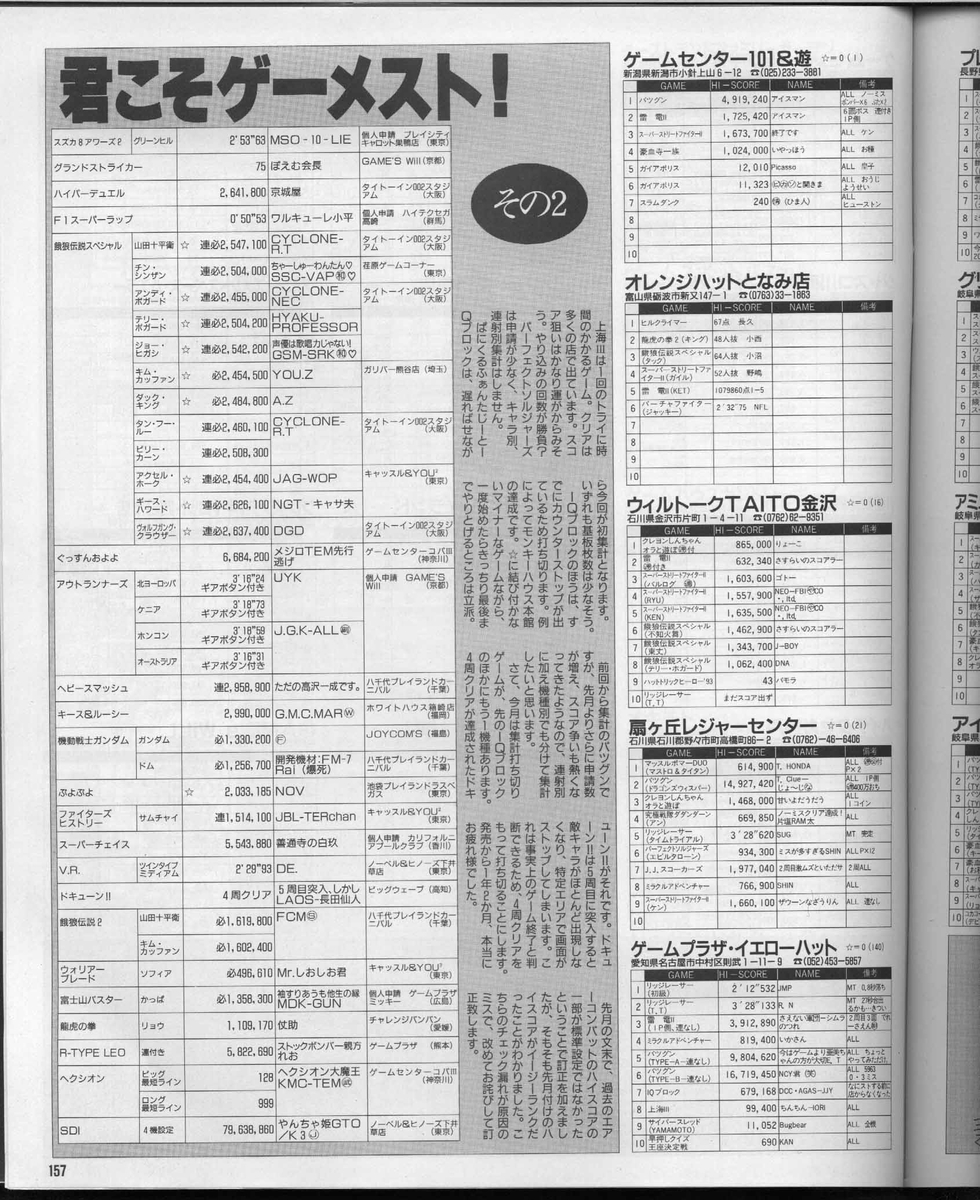 君こそゲーメスト!
その2
スズカ8アワーズ2 グリーンヒル 2'53"63 MSO-10-LIE 個人申請 プレイシティキャロット巣鴨店(東京)
グランドストライカー 75 ぽえむ会長 GAME'S Will(京都)
ハイパーデュエル 2,641,800 京城屋 タイトーイン002スタジアム(大阪)
F1スーパーラップ 0'50"53 ワルキューレ小平 個人申請 ハイテクセガ高崎(群馬)
餓狼伝説スペシャル 山田十平衛 ☆ 連必2,547,100 CYCLONE-R.T タイトーイン002スタジアム(大阪)
チン・シンザン 連必2,504,000 ちゃーしゅーわんたん♡SSC-VAP 荏原ゲームコーナー(東京)
アンディ・ボガード ☆ 連必2,455,000 CYCLONE-NEC タイトーイン002スタジアム(大阪)
テリー・ボガード ☆ 連必2,504,200 HYAKU-PROFESSOR
ジョー・ヒガシ ☆ 連必2,542,200 声優は歌唱力じゃない!GSM-SRK
キム・カッファン ☆ 必2,454,500 YOU.Z ガリバー熊谷店(埼玉)
ダック・キング ☆ 必2,484,800 A.Z
タン・フー・ルー 連必2,460,100 CYCLONE-R.T タイトーイン002スタジアム(大阪)
ビリー・カーン 連必2,508,300
アクセル・ホーク ☆ 連必2,454,400 JAG-WOP キャッスル&YOU²(東京)
ギース・ハワード ☆ 連必2,626,100 NGT-キャサ夫
ヴォルフガング・クラウザー ☆ 連必2,637,400 DGD タイトーイン002スタジアム(大阪)
ぐっすんおよよ 6,684,200 メジロTEM先行逃げ ゲームセンターコパIII(神奈川)
アウトランナーズ 北ヨーロッパ 3'16"24 ギアボタン付き UYK 個人申請 GAME'S Will(京都)
ケニア 3'18"73 ギアボタン付き
ホンコン 3'18"59 ギアボタン付き J.G.K-ALL
オーストラリア 3'16"31 ギアボタン付き
ヘビースマッシュ 連2,958,900 ただの高沢一成です。 八千代プレイランドカーニバル(千葉)
キース&ルーシー 2,990,000 G.M.C.MARⓌ ホワイトハウス箱崎店(福岡)
機動戦士ガンダム ガンダム 必1,330,200 Ⓕ JOYCOM'S(福島)
ドム 必1,256,700 開発機材:FM-7 Rai(爆死) 八千代プレイランドカーニバル(千葉)
ぷよぷよ ☆ 2,033,185 NOV 池袋プレイランドラスベガス(東京)
ファイターズヒストリー サムチャイ 連1,514,100 JBL-TERchan キャッスル&YOU²(東京)
スーパーチェイス 5,543,880 善通寺の白玖 個人申請 カリフォルニアプールクラブ(香川)
V.R. ツインタイプミディアム 2'29"93 DE. ノーベル&ヒノーズ下井草店(東京)
ドキューン!! 4周クリア 5周目突入、しかしLAOS-長田仙人 ビッグウェーブ(高知)
餓狼伝説2 山田十平衛 必1,619,800 FCMⓈ 八千代プレイランドカーニバル(千葉)
キム・カッファン 必1,602,400
ウォリアーブレード ソフィア 必496,610 Mr.しおしお君 キャッスル&YOU²(東京)
富士山バスター かっぱ 必1,358,300 袖すりあうも他生の縁MDK-GUN 個人申請 ゲームプラザミッキー(広島)
龍虎の拳 リョウ 1,109,170 仗助 チャレンジバンバン(愛媛)
R-TYPE LEO 連付き 5,822,690 ストックボンバー親方れお ゲームプラザ(熊本)
ヘクシオン ビッグ最短ライン 128 ヘクシオン大魔王KMC-TEM ゲームセンターコパIII(神奈川)
ロング最短ライン 999
SDI 4機設定 79,638,860 やんちゃ姫GTO/K3Ⓙ ノーベル&ヒノーズ下井草店(東京)
上海IIIは1回のトライに時
間のかかるゲーム。クリアは
多くの店で出ています。スコ
ア狙いはかなり運がからみそ
う。やり込みの回数が勝負?
パーフェクトソルジャーズ
は申請が少なく、キャラ別、
連射別集計はしません。
ぱにくるふぁんたじーと一
Qブロックは、遅ればせなが
ら今回が初集計となります。
いずれも基板枚数は少なそう。
IQブロックのほうは、す
でにカウンターストップが出
ているため打ち切ります。例
によってモンキーハウス本館
の達成です。☆に結び付かな
いマイナーなゲームながら、
一度始めたらきっちり最後ま
でやりとげるところは立派。
前回から集計のバツグンで
すが、先月よりさらに申請数
が増え、スコア争いも熱くな
ってきたようなので、連射別
に加え機種別でも分けて集計
したいと思います。
さて、今月は集計打ち切り
ゲームが、先のIQブロック
のほかにもう1機種あります。
4周クリアが達成されたドキ
ューン!!がそれです。ドキュ
ーン!!は5周目に突入すると
敵キャラがほとんど出現しな
くなり、特定エリアで画面が
ストップしてしまいます。こ
れは事実上のゲーム終了と判
断できるため、4周クリアを
もって打ち切ることにします。
発売から1年2か月、本当に
お疲れ様でした。
先月の文末で、過去のエア
ーコンバットのハイスコアの
一部が標準設定ではなかった
ということで訂正を加えまし
たが、そもそも先月付けのハ
イスコアがイージーランクだ
ったことがわかりました。こ
ちらのチェック漏れが原因の
ミスで、改めてお詫びして訂
正致します。
157
ゲームセンター101&遊 ☆=0(1)
新潟県新潟市小針上山6-12 ☎(025)233-3881
GAME HI-SCORE NAME 備考
1 バツグン 4,919,240 アイスマン ALL ノーミス
2 雷電II 1,725,420 アイスマン 6面ボス 連付き 1P側
3 スーパーストリートファイターII 1,673,700 終了です ALL ケン
4 豪血寺一族 1,024,000 いやっほう ALL お種
5 ガイアポリス 12,010 Picasso ALL 奈子
6 ガイアポリス 11,323 と開きま ALL おうじょうせい
7 スラムダンク 240 (ひま人) ALL ヒューストン
8
9
10
オレンジハットとなみ店
富山県砺波市新又147-1 ☎(0763)33-1863
GAME HI-SCORE NAME 備考
1 ヒルクライマー 67点 長久
2 龍虎の拳2(キング) 48人抜 小西
3 餓狼伝説スペシャル(タック) 64人抜 小沼
4 スーパーストリートファイターII(ガイル) 52人抜 野嶋
5 雷電II(KET) 1079860点1-5
6 バーチャファイター(ジャッキー) 2'32"75 NFL
7
8
9
10
ウィルトークTAITO金沢 ☆=0(16)
石川県金沢市片町1-4-11 ☎(0762)62-8351
GAME HI-SCORE NAME 備考
1 クレヨンしんちゃんオラと遊ぼ 865,000 りょーこ
2 雷電II 632,340 さすらいのスコアラー
3 スーパーストリートファイターII(バルログ) 1,603,600 ゴトー
4 スーパーストリートファイターII(RYU) 1,557,900 NEO-FBI
5 スーパーストリートファイターII(KEN) 1,635,500 NEO-FBI
6 餓狼伝説スペシャル(不知火舞) 1,462,900 さすらいのスコアラー
7 餓狼伝説スペシャル(東丈) 1,343,700 J-BOY
8 餓狼伝説スペシャル(テリー・ボガード) 1,062,400 DNA
9 ハットトリックヒーロー'93 43 バモラ
10 リッジレーサー(T,T) まだスコア出ず
扇ヶ丘レジャーセンター ☆=0(21)
石川県石川郡野々市町高橋町86-2 ☎(0762)-46-6406
GAME HI-SCORE NAME 備考
1 マッスルボマーDUO(マストロ&タイタン) 614,900 T, HONDA ALL P×2
2 バツグン(ドラゴンズウィスパー) 14,927,420 T, Cue- ALL 1P側
3 クレヨンしんちゃんオラと遊ぼ 1,468,000 甘いよだうだう ALL 1コイン
4 究極戦隊ダダンダーン(アン) 669,850 ノーミスクリア達成! 片端RAM太 ALL
5 リッジレーサー(タイムトライアル) 3'28"620 SUG MT 完走
6 パーフェクトソルジャーズ(エピルタローン) 934,300 ミスが多すぎるSHIN ALL P×12
7 J.J.スコーカーズ 1,977,040 2周目敵ムズといただサ 2周ALL
8 ミラクルアドベンチャー 766,900 SHIN ALL
9 スーパーストリートファイターII(ケン) 1,660,100 ザウーンなぞうりん ALL 連なし
10
ゲームプラザ・イエローハット ☆=0(140)
愛知県名古屋市中村区則武1-11-9 ☎(052)453-5857
GAME HI-SCORE NAME 備考
1 リッジレーサー(初級) 2'12"532 JMP MT 0.8秒落ち
2 リッジレーサー(T,T) 3'28"133 R, N MT 27秒台出るかも…きつい
3 雷電II(1P側、連なし) 3,912,890 さえない軍団-シムラのつれ 2周目3面 でれーさえん朝
4 ミラクルアドベンチャー 819,400 いかさん ALL
5 バツグン(TYPE-A-連なし) 9,804,620 今はゲームより亜美ちゃんの方が大切E, T ALL ちょっとやってみただけ。
6 バツグン(TYPE-B-連なし) 16,719,450 NCY君(笑) ALL 5963 0・3ミス
7 IQブロック 679,168 DCC・AGAS-JJY なにストする前に店からなくなった
8 上海III 99,400 ちんちん-IORI ALL
9 サイバースレッド(YAMAMOTO) 11,052 Bugbear ALL 全機
10 早押しクイズ王座決定戦 690 KAN ALL